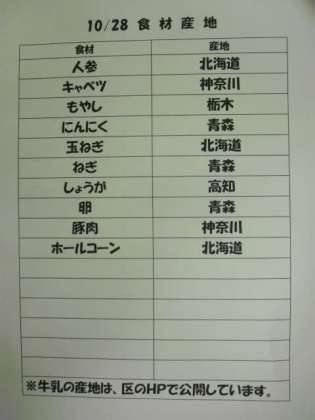 10/28 食材産地
食材 産地
人参 北海道
キャベツ 神奈川
もやし 栃木
にんにく 青森
玉ねぎ 北海道
ねぎ 青森
しょうが 高知
卵 青森
豚肉 神奈川
ホールコーン 北海道
※牛乳の産地は、区のHPで公開しています。